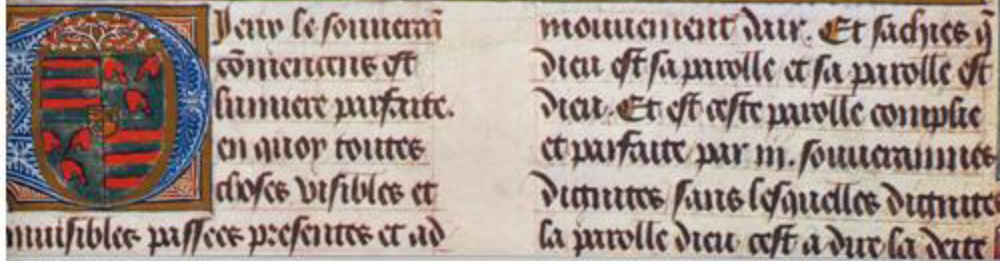 Dieu le souuerai̅
co̅mencens est
lumiere parfaite.
en quoy toutes
choses visibles et
inuisibles passees presentes et ad
mouuement dair. Et sachies q̅
dieu est sa parolle et sa parolle est
dieu. Et est ceste parolle complie
et parfaite par iii. souuerainnes
dignites sans lesquelles dignites
la parolle dieu cest a dire la deite